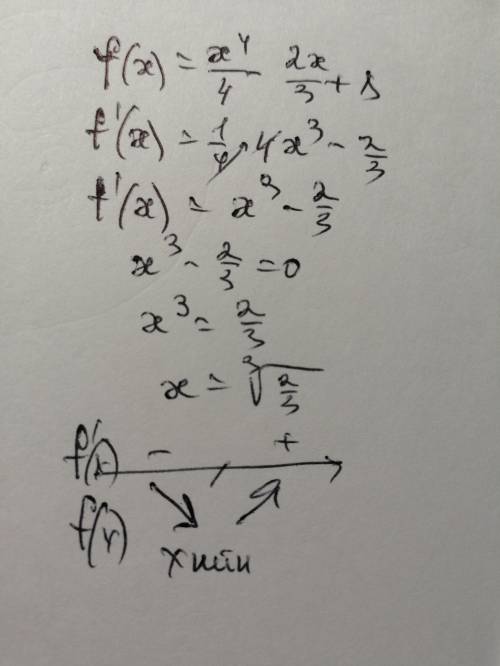 f(x) = x⁴/4 2x/3 + 1
f'(x) = 1/4 · 4x³ - 2/3
f'(x) = x³ - 2/3
x³ - 2/3 = 0
x³ = 2/3
x = ∛(2/3)
f'(x) - +
f(x)
x мин